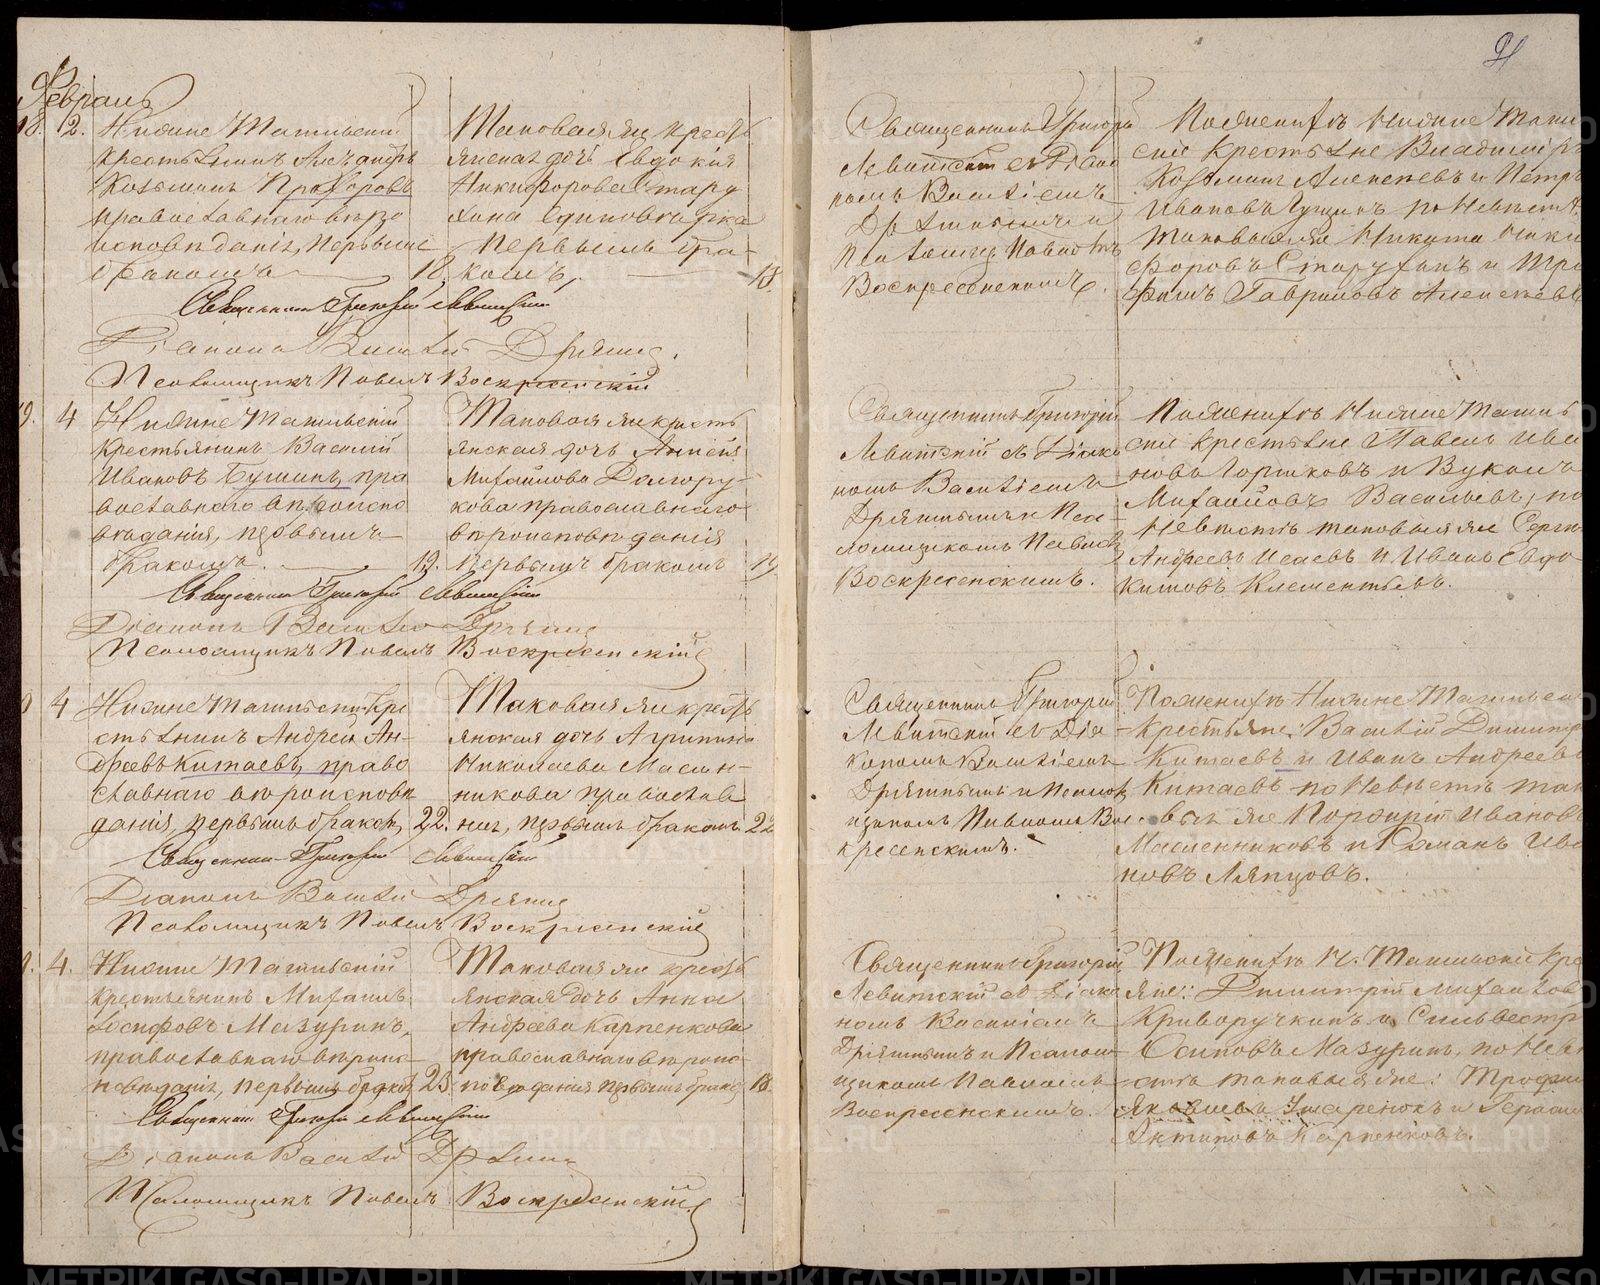 Февраль
18. 2. Нижне Тагильский
крестьянинъ Александръ
Козьминъ Прохоровъ
православнаго вѣро
исповѣданія, первымъ
бракомъ 18.
Таковая же кресть
янская дочь Евдокія
Никифорова Стару
хина единовѣрка
первымъ бра-
комъ, 18.
Священникъ Григорій Левитскій
Діаконъ Василій Дрягинъ
Псаломщикъ Павелъ Воскресенскій
Священникъ Григорій
Левитскій съ Діако
номъ Василіемъ
Дрягинымъ и
Псаломщ. Павломъ
Воскресенскимъ.
По женихѣ Нижне Тагиль
скіе крестьяне Владиміръ
Козьминъ Алексѣевъ и Петръ
Ивановъ Гущинъ по невѣстѣ
таковые же Никита Ники
форовъ Старухинъ и Тро
фимъ Гавриловъ Алексѣевъ
19. 4 Нижне Тагильскій
крестьянинъ Василій
Ивановъ Бушинъ, пра
вославнаго вѣроиспо
вѣданія, первымъ
бракомъ. 19.
Таковая же кресть
янская дочь
Михайлова Долгору-
кова православнаго
вѣроисповѣданія
первымъ бракомъ 19
Священникъ Григорій Левитскій
Діаконъ Василій Дрягинъ
Псаломщикъ Павелъ Воскресенскій
Священникъ Григорій
Левитскій съ Діако
номъ Василіемъ
Дрягинымъ и Пса-
ломщикомъ Павломъ
Воскресенскимъ.
По женихѣ Нижне Тагиль
скіе крестьяне Павелъ Ива
новъ Горшковъ и Вуколъ
Михайловъ Васильевъ, по
невѣстѣ таковые же Сергѣй
Андреевъ Исаевъ и Иванъ Евдо
кимовъ Клементьевъ.
4 Нижне Тагильскій кре
стьянинъ Андрей Ан-
дреевъ Китаевъ, право
славнаго вѣроисповѣ
данія, первымъ бракомъ, 22.
Таковая же кресть
янская дочь Агрипина
Николаева Маслен-
никова православ
ная, первымъ бракомъ. 22
Священникъ Григорій Левитскій
Діаконъ Василій Дрягинъ
Псаломщикъ Павелъ Воскресенскій
Священникъ Григорій
Левитскій съ Діа-
кономъ Василіемъ
Дрягинымъ и Псалом
щикомъ Павломъ Вос
кресенскимъ.
По женихѣ Нижне Тагильскіе
крестьяне: Василій Димитр
Китаевъ и Иванъ Андреевъ
Китаевъ по невѣстѣ так
овые же Порфирій Ивановъ
Масленниковъ и Романъ Ива
новъ Ляпцовъ.
4. Нижне Тагильскій
крестьянинъ Михаилъ
Іосифовъ Мазуринъ,
православнаго вѣроис-
повѣданія, первымъ бракомъ 23
Таковая же кресть
янская дочь Анна
Андреева Карпенкова
православнаго вѣроис-
повѣданія первымъ бракомъ 18
Священникъ Григорій Левитскій
Діаконъ Василій Дрягинъ
Псаломщикъ Павелъ Воскресенскій
Священникъ Григорій
Левитскій съ Діако
номъ Василіемъ
Дрягинымъ и Псалом-
щикомъ Павломъ
Воскресенскимъ.
По женихѣ Н. Тагильскіе кре
стьяне: Димитрій Михайловъ
Криворучкинъ и Сильвестръ
Осиповъ Мазуринъ, по невѣ
стѣ таковые же: Трофимъ
Яковлевъ и Герасимъ
Антиповъ Карпенковъ.
METRIKI.GASO-URAL.RU